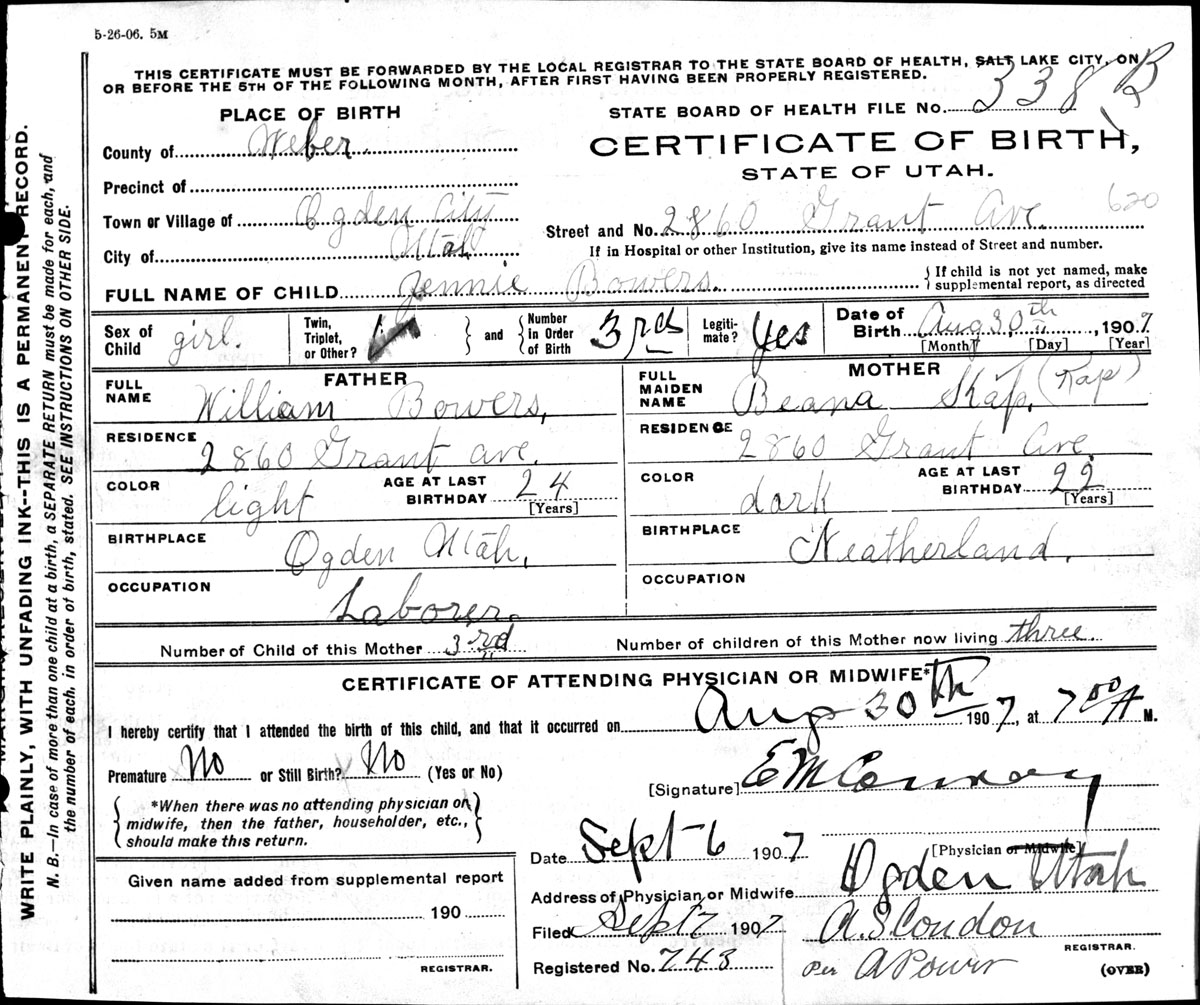 5-26-06. 5M
THIS CERTIFICATE MUST BE FORWARDED BY THE LOCAL REGISTRAR TO THE STATE BOARD OF HEALTH, SALT LAKE CITY, ON
OR BEFORE THE 5TH OF THE FOLLOWING MONTH, AFTER FIRST HAVING BEEN PROPERLY REGISTERED.
338 B
PLACE OF BIRTH
STATE BOARD OF HEALTH FILE NO.
County of Weber.
CERTIFICATE OF BIRTH,
STATE OF UTAH.
Precinct of
Town or Village of Ogden City
620
Street and No. 2860 Grant Ave.
City of Utah
If in Hospital or other Institution, give its name instead of Street and number.
FULL NAME OF CHILD Jennie Bowers.
If child is not yet named, make
supplemental report, as directed
Sex of
Child girl.
Twin,
Triplet,
or Other?
and
Number
in Order
of Birth 3rd
Legiti-
mate? Yes
Date of
Birth Aug 30th, 1907
[Month] [Day] [Year]
FATHER
FULL
NAME William Bowers,
RESIDENCE
2860 Grant ave.
COLOR light
AGE AT LAST
BIRTHDAY 24
[Years]
BIRTHPLACE
Ogden Utah,
OCCUPATION
Laborer.
MOTHER
FULL
MAIDEN
NAME Beana Kap. (Kap)
RESIDENCE
2860 Grant Ave.
COLOR dark
AGE AT LAST
BIRTHDAY 22
[Years]
BIRTHPLACE
Neatherland.
OCCUPATION
Number of Child of this Mother 3rd
Number of children of this Mother now living three.
CERTIFICATE OF ATTENDING PHYSICIAN OR MIDWIFE*
I hereby certify that I attended the birth of this child, and that it occurred on Aug 30th 1907, at 7 00 A M.
Premature No or Still Birth? No (Yes or No)
[Signature] E M Conroy
*When there was no attending physician or
midwife, then the father, householder, etc.,
should make this return.
Date Sept 6 1907
[Physician or Midwife]
Address of Physician or Midwife Ogden Utah
Given name added from supplemental report
190
REGISTRAR.
Filed Sept 7 1907
A. S. Condon
REGISTRAR.
Registered No. 743
Per A Power
(OVER)
WRITE PLAINLY, WITH UNFADING INK--THIS IS A PERMANENT RECORD.
N. B.—In case of more than one child at a birth, a SEPARATE RETURN must be made for each, and
the number of each, in order of birth, stated. SEE INSTRUCTIONS ON OTHER SIDE.